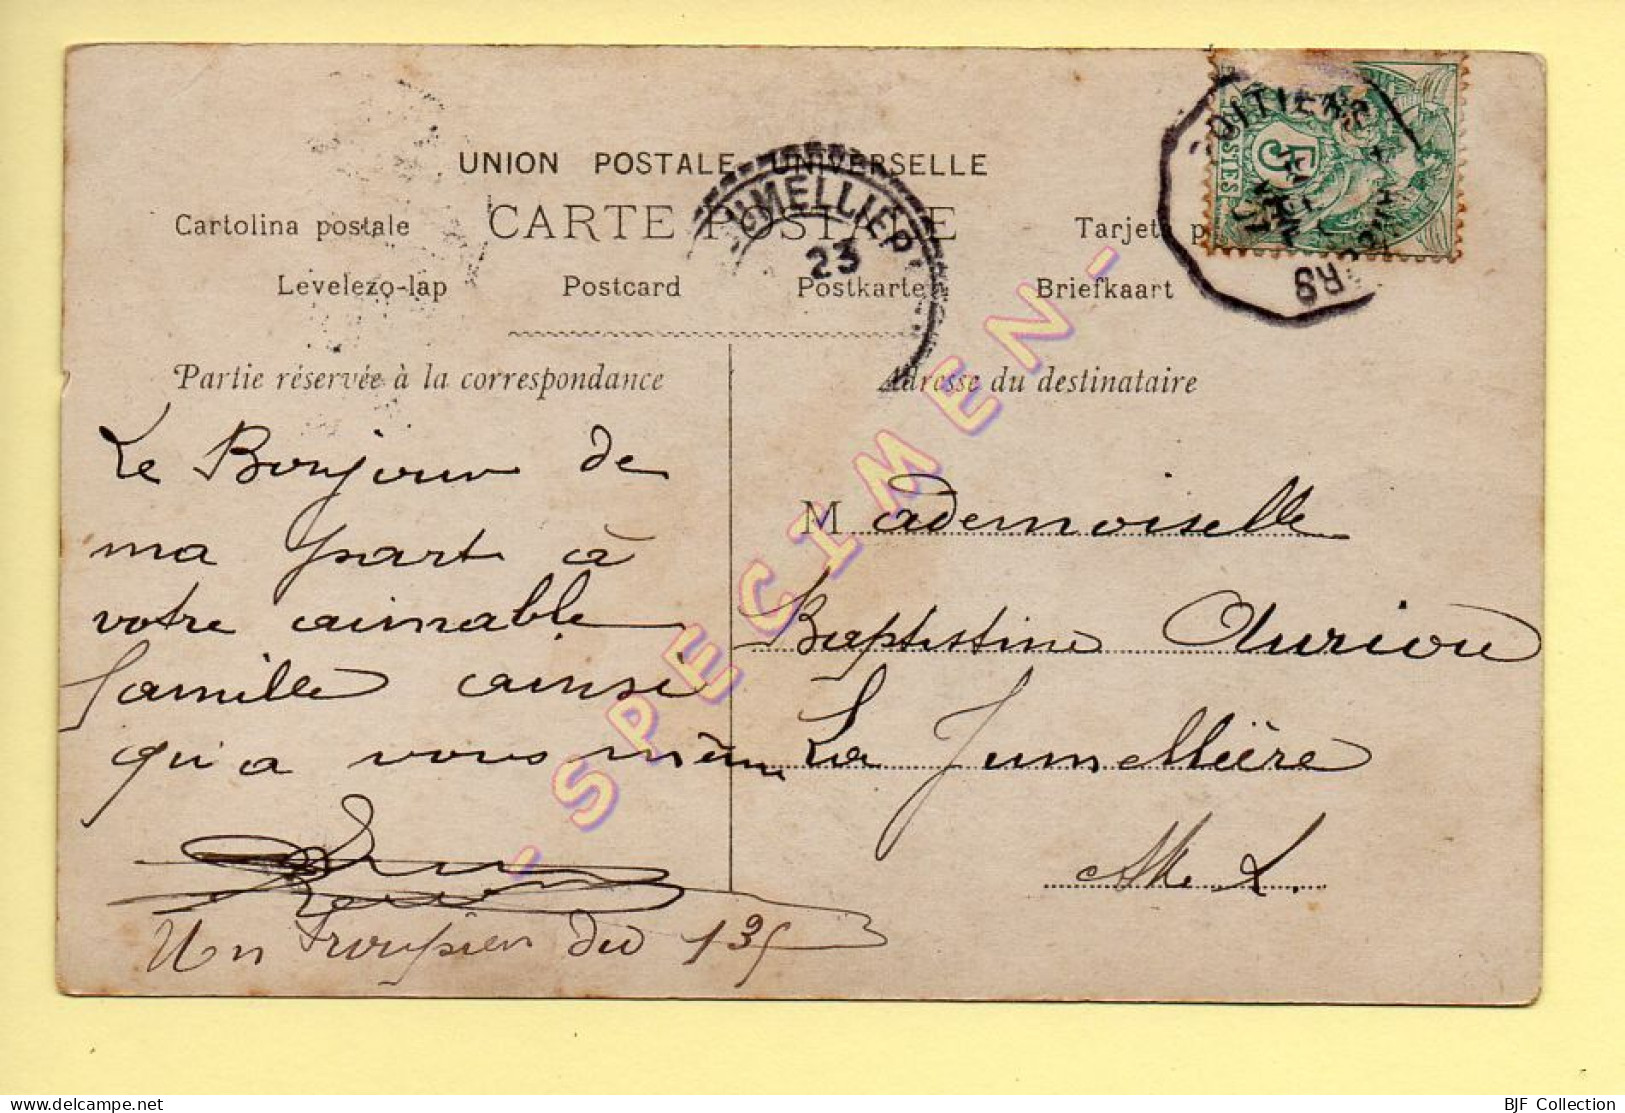 UNION POSTALE UNIVERSELLE
CARTE POSTALE
Cartolina postale
Levelezo-lap
Postcard
Postkarte
Briefkaart
UMELLIÈR
23
OITIERS
5
RS
Partie réservée à la correspondance
Adresse du destinataire
Le Bonjour de
ma part à
votre aimable
famille ainsi
qu'a vous même
Un Troupier du 135
Mademoiselle
Baptistine Auriou
La Jumellière
M. & L.
- SPECIMEN -
BJF Collection